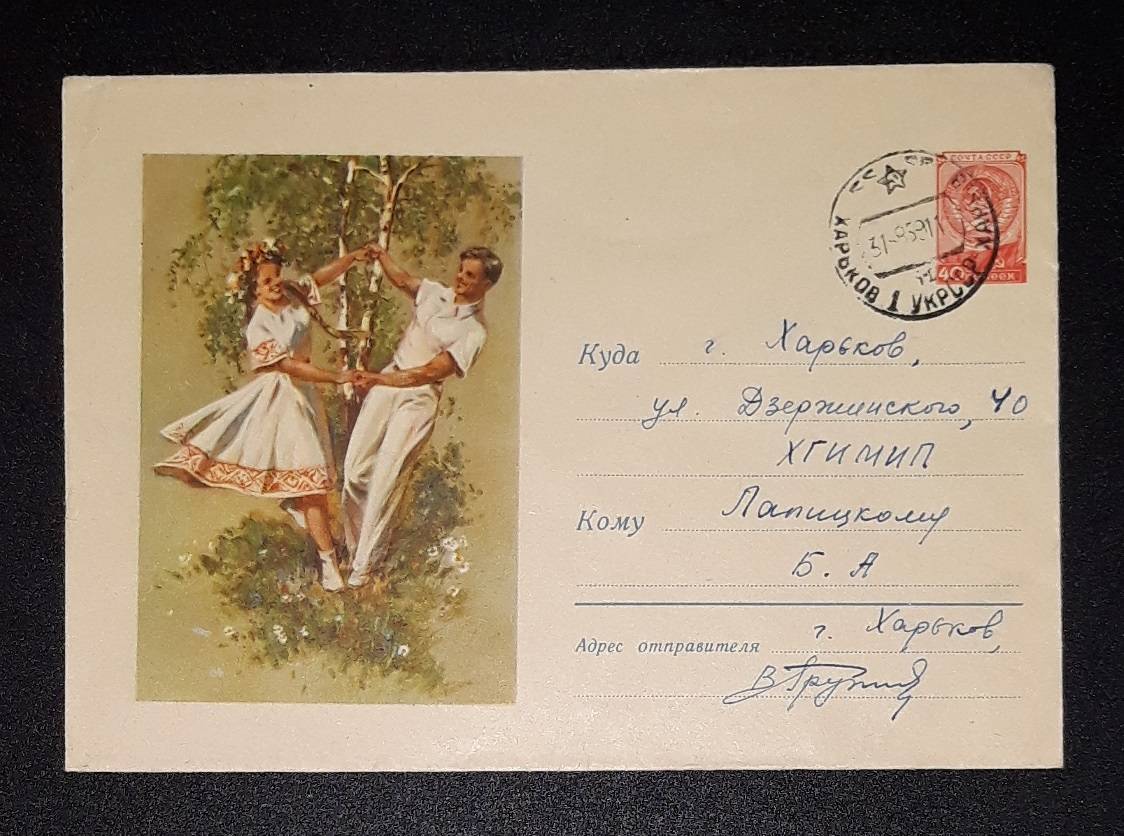 ПОЧТА СССР
40 КОПЕЕК
ХАРЬКОВ 1 УКРССР
Куда г. Харьков,
ул. Дзержинского, 40
ХГИМИП
Кому Лапицкому
Б. А
Адрес отправителя г. Харьков,